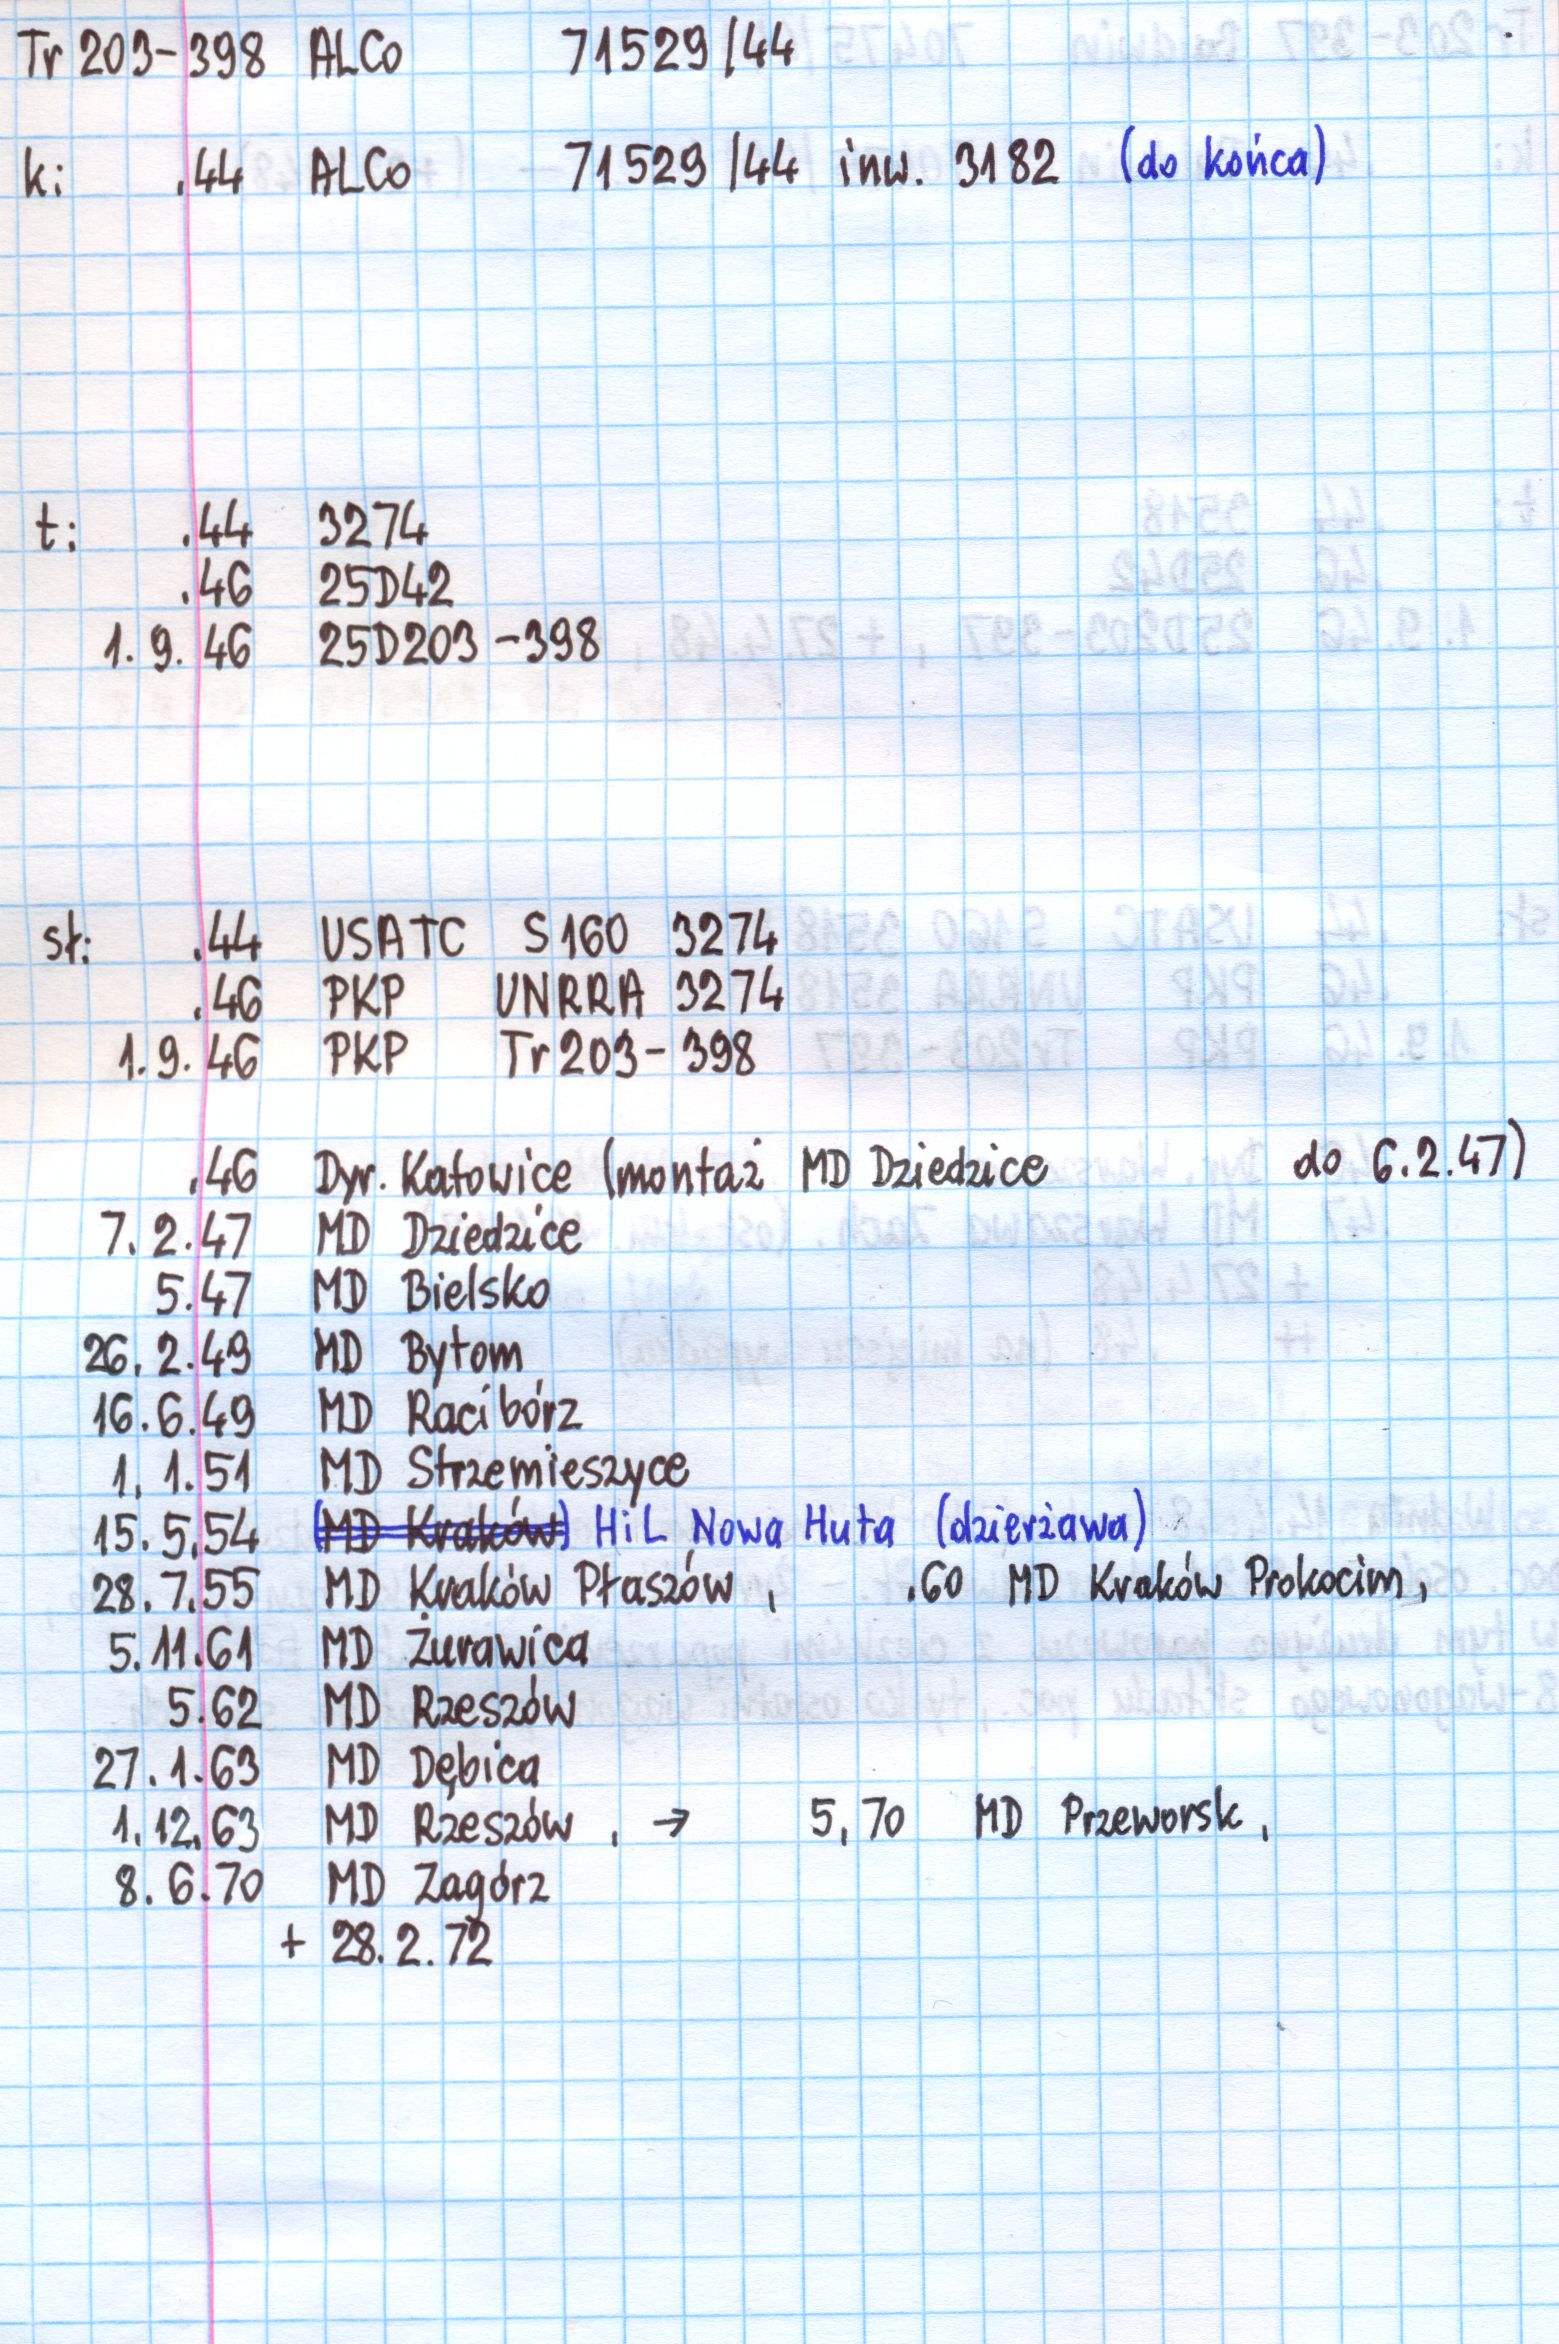 Tr 203-398 ALCo 71529/44
k: .44 ALCo 71529/44 inw. 3182 (do końca)
t: .44 3274
.46 25D42
1.9.46 25D203-398
sł: .44 USATC S160 3274
.46 PKP UNRRA 3274
1.9.46 PKP Tr203-398
.46 Dyr. Katowice (montaż MD Dziedzice do 6.2.47)
7.2.47 MD Dziedzice
5.47 MD Bielsko
26.2.49 MD Bytom
16.6.49 MD Racibórz
1.1.51 MD Strzemieszyce
15.5.54 (MD Kraków) HiL Nowa Huta (dzierżawa)
28.7.55 MD Kraków Płaszów, .60 MD Kraków Prokocim,
5.11.61 MD Żurawica
5.62 MD Rzeszów
27.1.63 MD Dębica
1.12.63 MD Rzeszów , → 5.70 MD Przeworsk,
8.6.70 MD Zagórz
+ 28.2.72